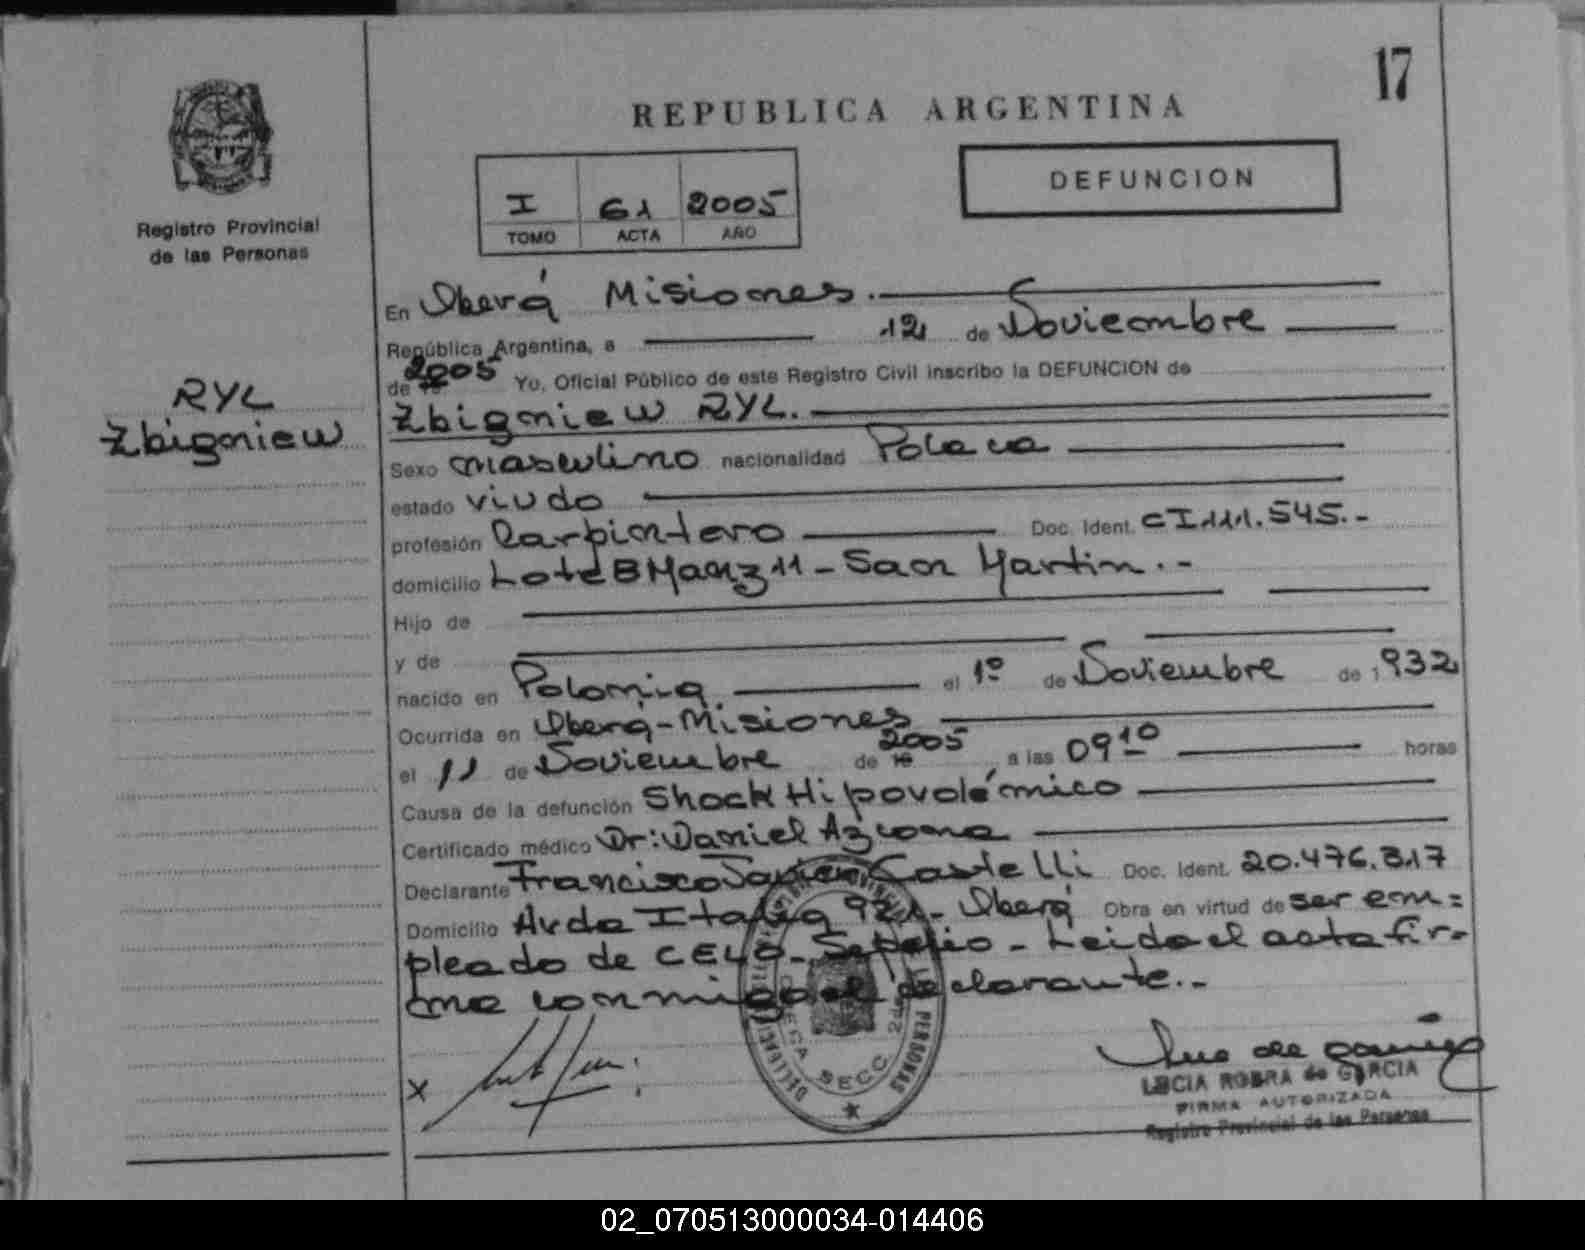 17
REPUBLICA ARGENTINA
DEFUNCION
I 61 2005
TOMO ACTA AÑO
Registro Provincial
de las Personas
RYL
Zbigniew
En Oberá Misiones.
República Argentina, a 12 de Noviembre
de 2005 Yo, Oficial Público de este Registro Civil inscribo la DEFUNCION de
Zbigniew RYL.
Sexo masculino nacionalidad Polaca
estado viudo
profesión Carpintero Doc. Ident. CI 111.545.-
domicilio Lote 8 Manz 11 - San Martin.-
Hijo de
y de
nacido en Polonia el 1º de Noviembre de 1932
Ocurrida en Oberá - Misiones
el 11 de Noviembre de 2005 a las 09 10 horas
Causa de la defunción Shock Hipovolémico
Certificado médico Dr: Daniel Azcona
Declarante Francisco Javier Castelli Doc. Ident. 20.476.817
Domicilio Avda Italia 921 - Oberá Obra en virtud de ser em=
pleado de CELO - Sepelio - Leida el acta fir-
ma conmigo el declarante.-
X
PERSONAS
SECC. 2da
LUCIA ROBRA de GARCIA
FIRMA AUTORIZADA
Registro Provincial de las Personas
02_070513000034-014406